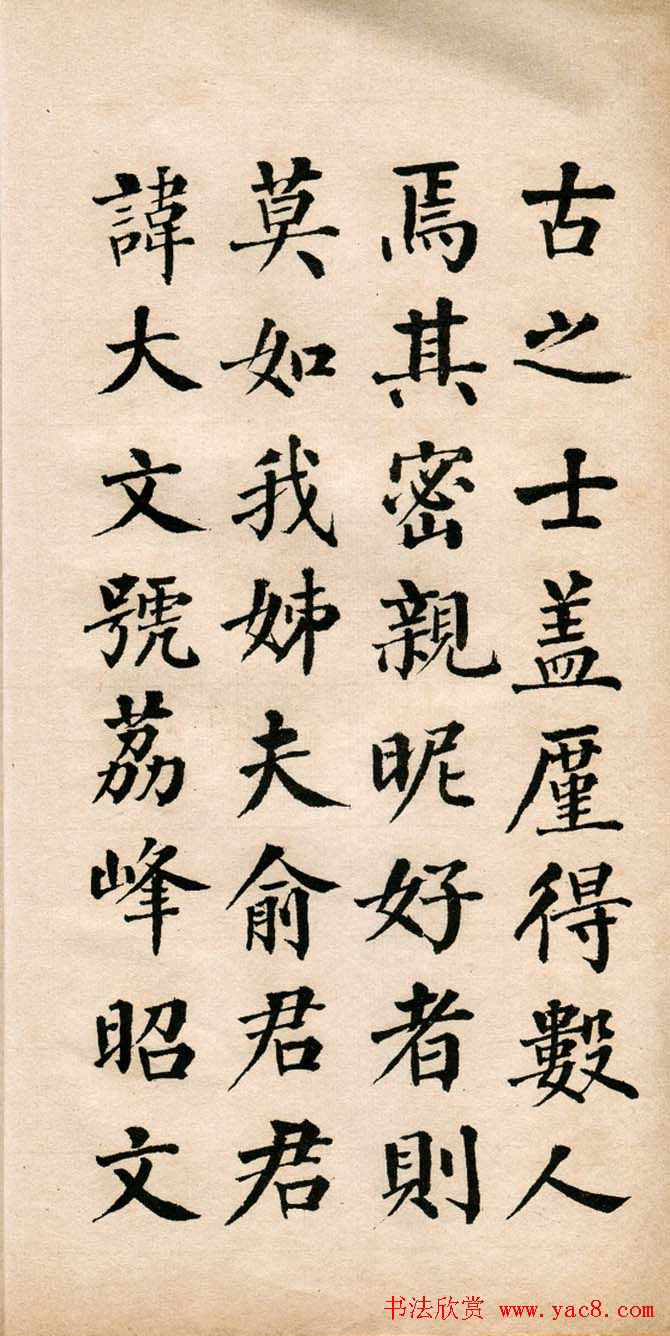 古之士蓋廑得數人
焉其密親昵好者則
莫如我姊夫俞君君
諱大文號荔峰昭文
书法欣赏 www.yac8.com